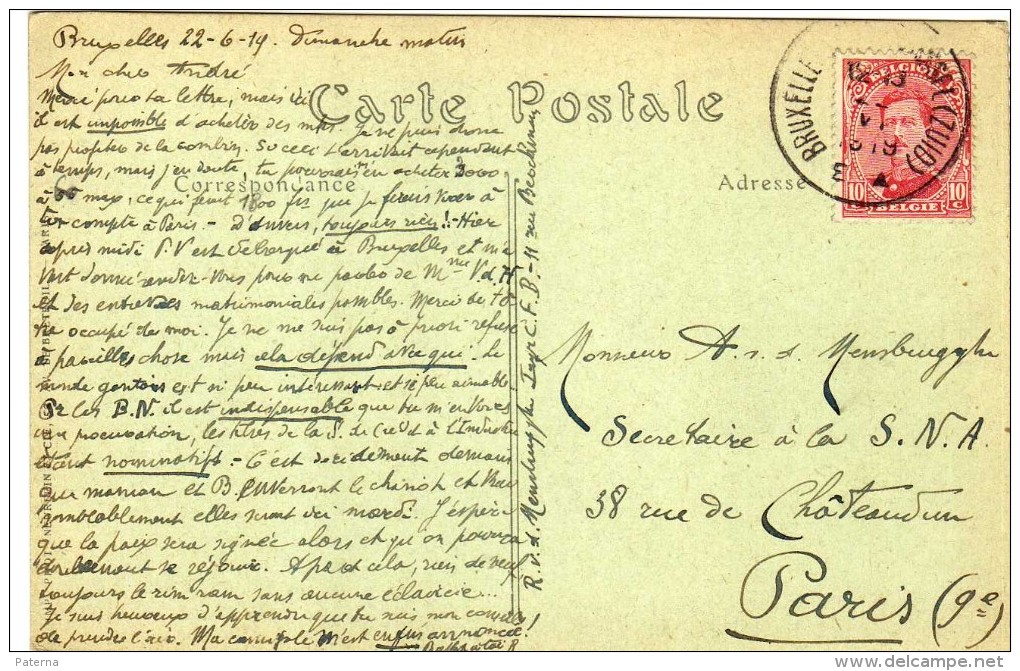 Bruxelles 22-6-19. Dimanche matin
Mon cher André
Merci pour ta lettre, mais ici
il est impossible d'acheter des mks. Je ne puis donc
pas profiter de la combin. Si ceci t'arrivait cependant
à temps, mais j'en doute, tu pourrais m'en acheter 3000
à 60 max, ce qui ferait 1800 frs que je ferais à
ton compte à Paris. - D'Anvers, toujours rien! - Hier
après midi P.V est débarqué à Bruxelles et m'a
fait donner rendez-vous pour me parler de Mme V.d.H
et des entrevues matrimoniales possibles. Merci de t'ê-
tre occupé de moi. Je ne me suis pas à priori refusé
à pareilles chose mais cela dépend avec qui. Le
monde gantois est si peu intéressant et si peu aimable.
Pr les B.N. il est indispensable que tu m'envoies
une procuration, les titres de la S. de Créd à l'Industrie
étant nominatifs. - C'est décidément demain
que maman et B. enverront le chariot et vrai
semblablement elles seront ici mardi. J'espère
que la paix sera signée alors et qu'on pourra
doublement se réjouir. Apart cela, rien de neuf
toujours le rim ram sans aucune éclaircie...
Je suis heureux d'apprendre que tu suis mon conseil
de prendre l'air. Ma est enfin annoncée!
R.v.d. Mensbrugghe Ingr C.F.B. - 11 rue
Carte Postale
Correspondance
Adresse
BELGIQUE
10 c
10 c
BELGIE
BRUXELLE
BRUSSEL (ZUID)
1919
Monsieur A. v. d. Mensbrugghe
Secretaire à la S. N. A.
38 rue de Châteaudun
Paris (9e)
Paterna
delcampe.net